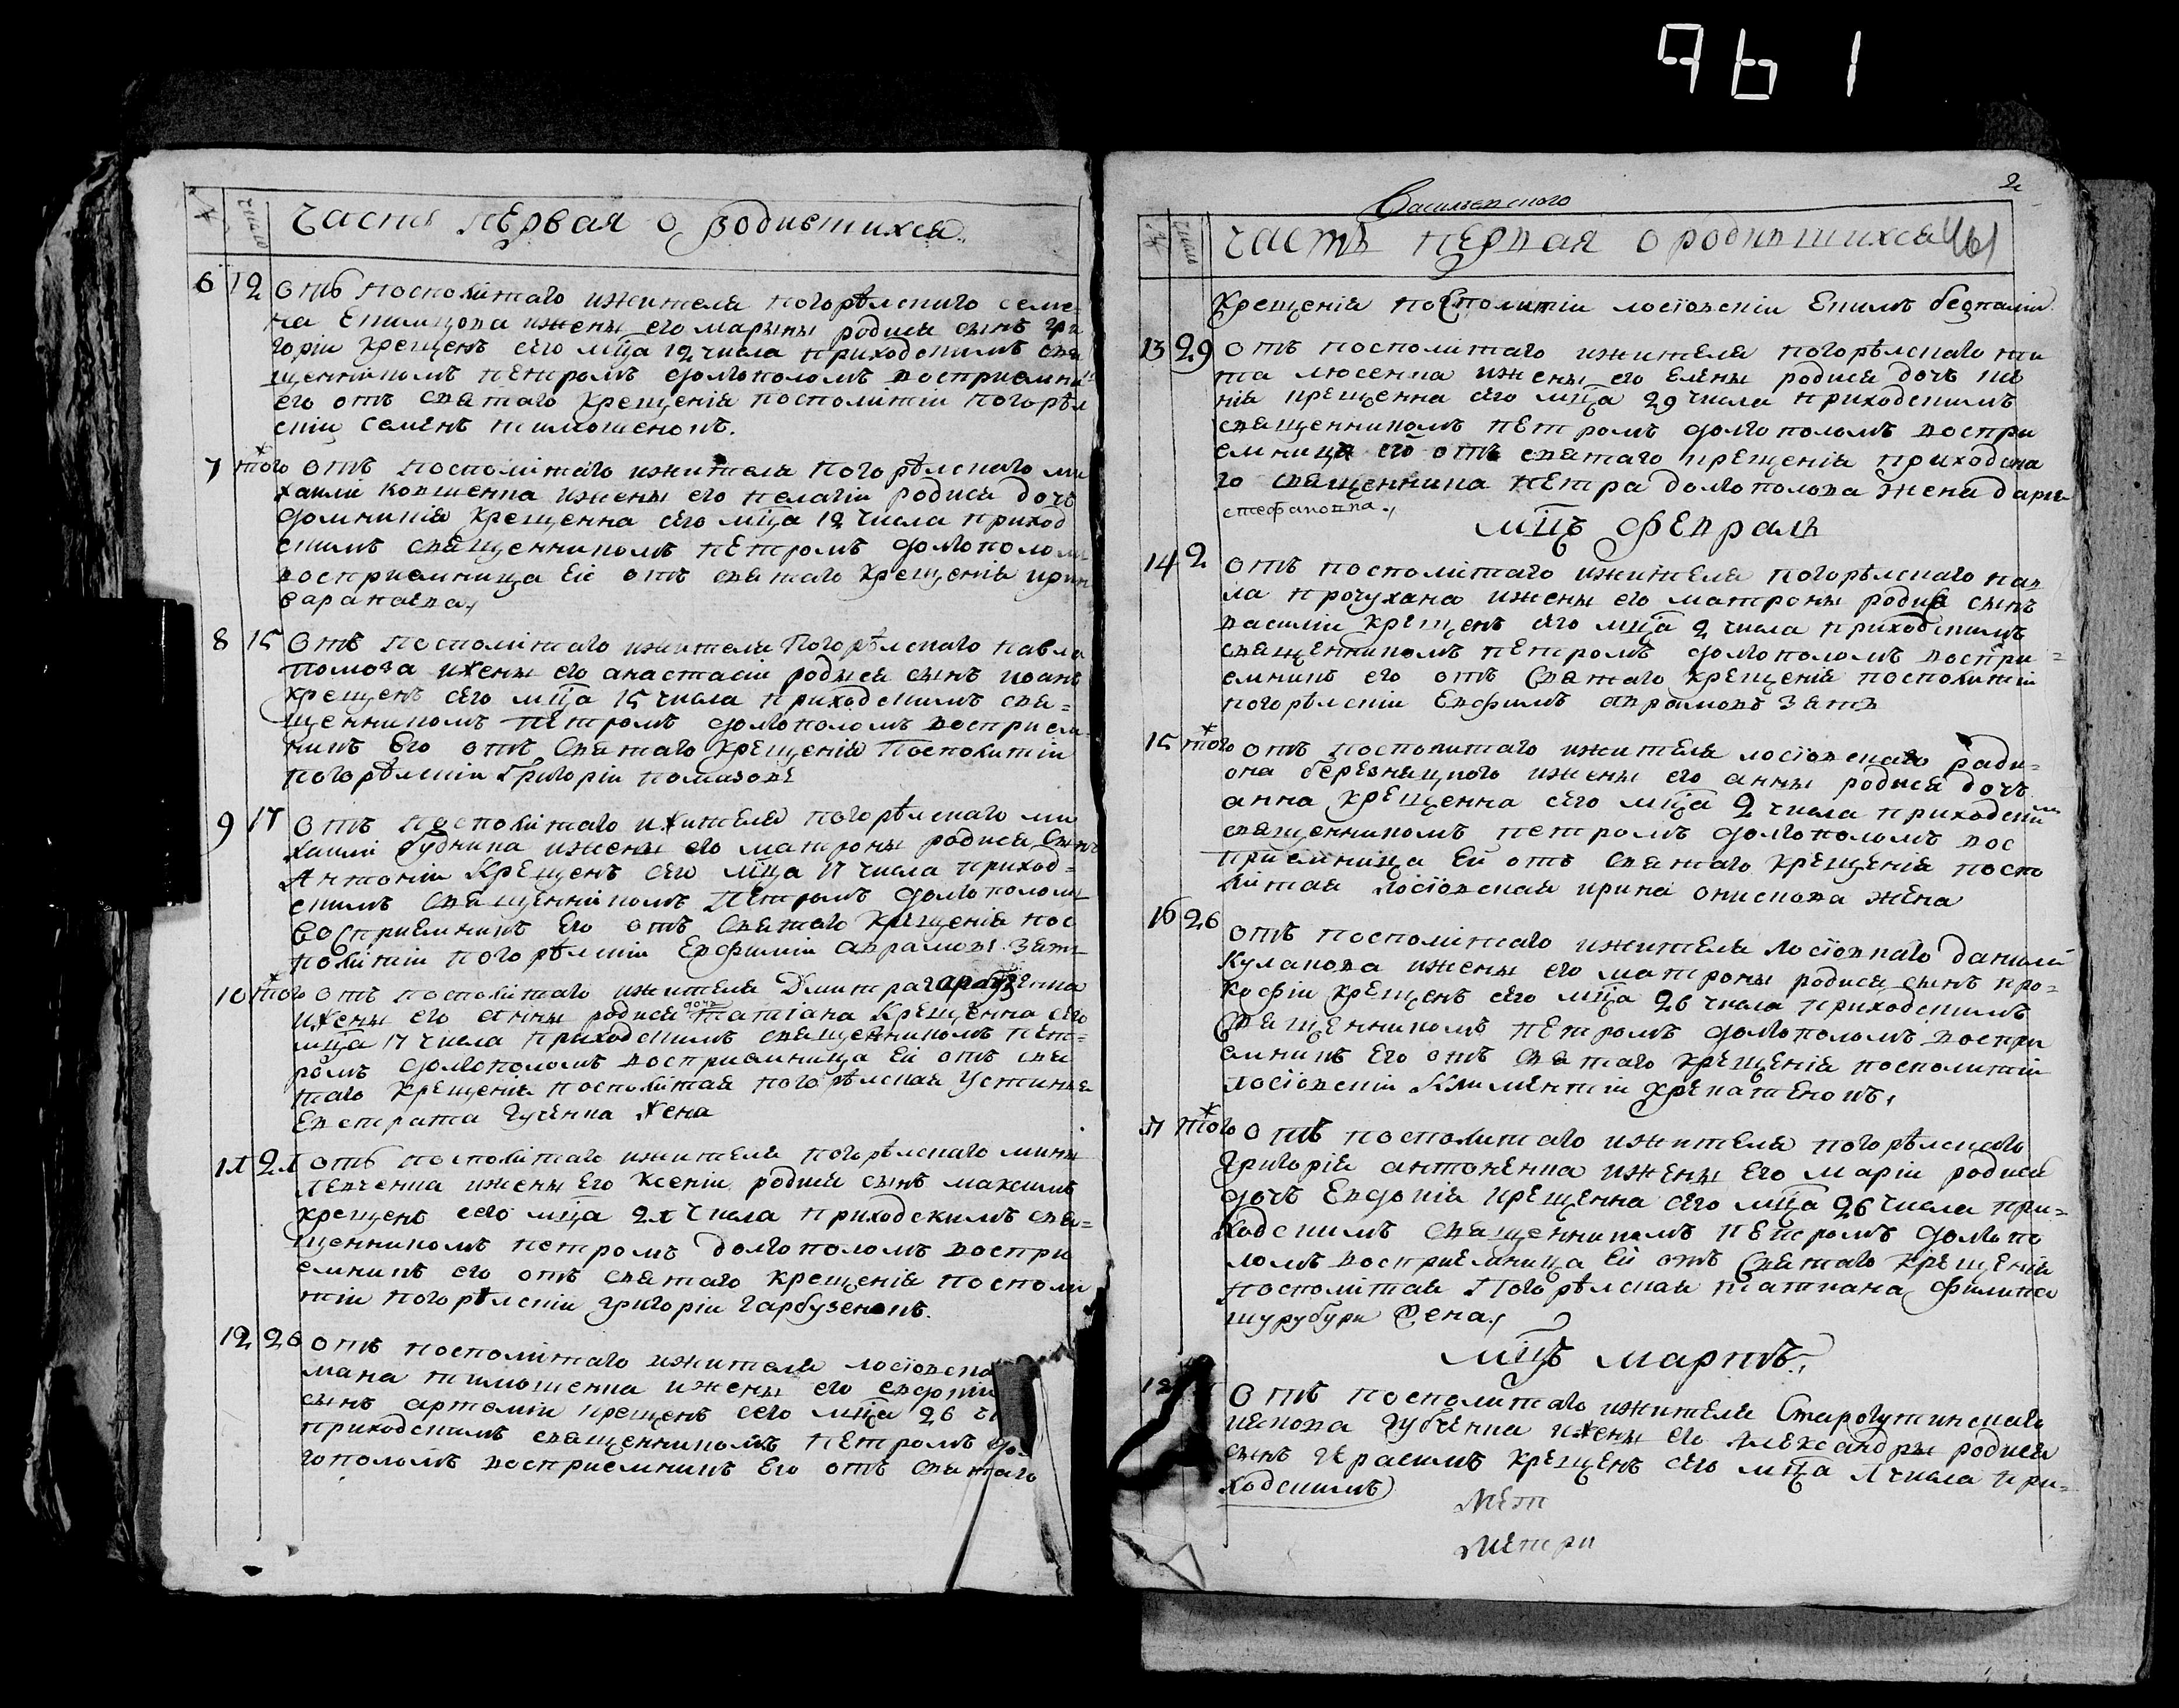 961
№ число Часть первая о родившихся
6 12 Отъ посполитаго ижителя погорѣлского семе-
на Епимцова ижены его марины родися сынъ гри
горіи крещенъ сего мца 12 числа приходскимъ свя
щенникомъ петромъ долгополомъ восприемни
его отъ святаго крещенія посполитіи погорѣл
скіи семенъ тимошенокъ.
7 того отъ посполитаго ижителя погорѣлскаго ми
хаили ковшенка ижены его пелагіи родися дочь
домникія крещенна сего мца 12 числа приход
скимъ священникомъ петромъ долгополом
восприемница еи отъ святаго крещенія ирин
сараналва,
8 15 Отъ посполитаго ижителя Погорѣлскаго павла
помоза ижены его анастасіи родися сынъ иоанъ
крещенъ сего мца 15 числа приходскимъ свя=
щенникомъ петромъ долгополомъ восприем
никъ Его отъ Святаго крещенія Посполитіи
погорѣлскіи Григоріи помазовъ
9 17 Отъ посполитаго ижителя погорѣлскаго ми
хаили Рудника ижены его матроны родися Сынъ
Антоніи Крещенъ сего мца 17 числа приход=
скимъ Священникомъ Петромъ Долгополом
Восприемникъ Его отъ Святаго крещенія пос
политіи погорѣлскіи Евфиміи аврамовъ зять
10 того отъ посполитаго ижителя Дмитра гарбузенка
ижены его анны родися дочь татиана Крещенна сего
мца 17 числа приходскимъ священникомъ пет=
ромъ долгополомъ восприемница еи отъ свя
таго крещенія посполитая погорѣлская Устинья
Евстрата Гученка жена
11 21 отъ посполитаго ижителя погорѣлскаго мины
левченка ижены Его Ксеніи родися сынъ максимъ
крещенъ сего мца 21 числа приходскимъ свя=
щенникомъ петромъ долгополомъ воспри
емникъ его отъ святаго крещенія посполи
тіи погорѣлскіи григоріи гарбузенокъ.
12 26 отъ посполитаго ижителя лосїовска
мана тимошенка ижены его евдокіи
сынъ артеміи крещенъ сего мца 26 чи
приходскимъ священникомъ петромъ до
гополомъ восприемникъ Его отъ святаго
Васильевского
2
№ число Часть первая о родившихся 461
Крещенія посполитіи лосїовскіи Екимъ беспаліи
13 29 отъ посполитаго ижителя погорѣлскаго ти
та люсенка ижены его Елены родися дочь
нія крещенна сего мца 29 числа приходскимъ
священникомъ петромъ долгополомъ воспри
емница его отъ святаго крещенія приходска
го священника петра долгополова жена даря
стефановна.,
мцъ февраль
14 2 отъ посполитаго ижителя погорѣлскаго пав
ла прочухана ижены его матроны родися сынъ
василіи крещенъ сего мца 2 числа приходскимъ
священникомъ петромъ долгополомъ воспри=
емникъ его отъ Святаго крещенія посполитіи
погорѣлскіи Евфимъ аврамовъ зять
15 того отъ посполитаго ижителя лосїовскаго ради=
она березницкого ижены его анны родися дочь
анна крещенна сего мца 2 числа приходским
священникомъ петромъ долгополомъ вос
приемница Еи отъ святаго крещенія поспо
литая лосїовская ирина онискова жена
16 26 отъ посполитаго ижителя лосїовкаго данили
Кулакова ижены его матроны родися сынъ про=
кофіи крещенъ сего мца 26 числа приходскимъ
Священникомъ петромъ долгополомъ воспри
емникъ Его отъ святаго крещенія посполитіи
лосїовскіи Климентіи
17 того отъ посполитаго ижителя погорѣлскаго
Григорія антоненка ижены Его маріи родися
дочь Евдокія крещенна сего мца 26 числа при=
ходскимъ священникомъ петромъ долгопо
ломъ восприемница Еи отъ святаго крещенія
посполитая Погорѣлская татиана филипа
шурубури жена.,
мцъ мартъ.,
18 Отъ посполитаго ижителя Старогутинскаго
иакова Губченка ижены его Александры родися
сынъ Герасимъ крещенъ сего мца 1 числа при=
ходскимъ
Мет
Метри